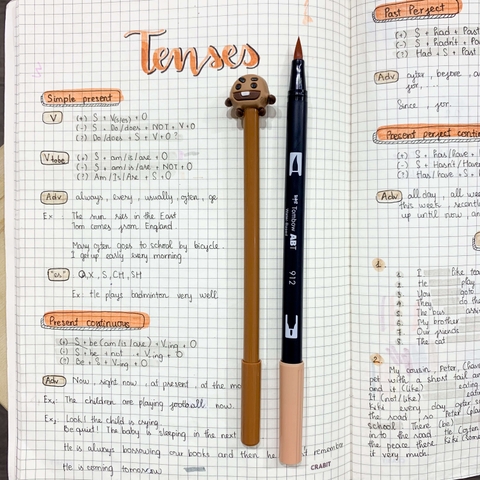 Tenses
Simple present
V
(+) S + V(s/es) + O
(-) S + Do/does + NOT + V + O
(?) Do/does + S + V + O ?
V tobe
(+) S + am/is/are + O
(-) S + am/is/are + NOT + O
(?) Am/Is/Are + S + O
Adv
always, every, usually, often,
Ex
The sun rises in the East
Tom comes from England
Mary often goes to school by bicycle.
I get up early every morning
"es"
O, X, S, CH, SH
Ex: He plays badminton very well
Present continuous
(+) S + be (am/is/are) + Ving + O
(-) S + be + not + Ving + O
(?) Be + S + Ving + O
Adv
Now, right now, at present, at the mo
Ex1 The children are playing football now.
Ex2 Look! the child is crying
Be quiet! The baby is sleeping in the next
He is always borrowing our books and then he remembe
He is coming tomorrow
Tombow ABT 912
CRABIT
Past Perfect
(+) S + had + Past
(-) S + hadn't + Pas
(?) Had + S + Past
Adv
after, before,
for,
Since, for
Present perfect contin
(+) S + has/have +
(-) S + Hasn't/Haven
(?) Has/have + S +
Adv
all day, all wee
this week, recentl
up until now, an
1.
1. I like
2. He play
3. You goto
4. They do the
5. The bus arri
6. My brother
7. Our friends
8. The cat
2.
My cousin, Peter, (have
pet with a short tail an
and it (like) eating
It (not/like) eat
every day
the road, so Peter
school. There (be)
in to the road He
the peace there
it very much.